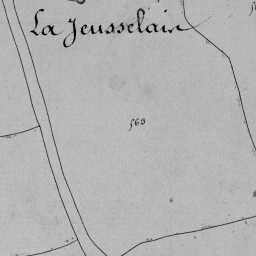 La Jeusselain
563